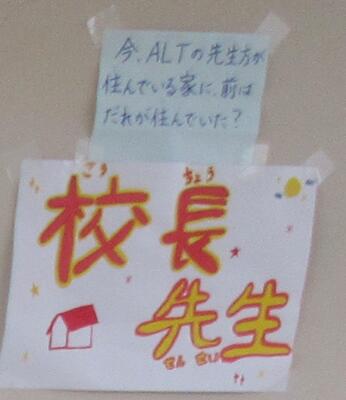 今、ALTの先生方が
住んでいる家に、前は
だれが住んでいた?
こう ちょう
校長
先生
せんせい